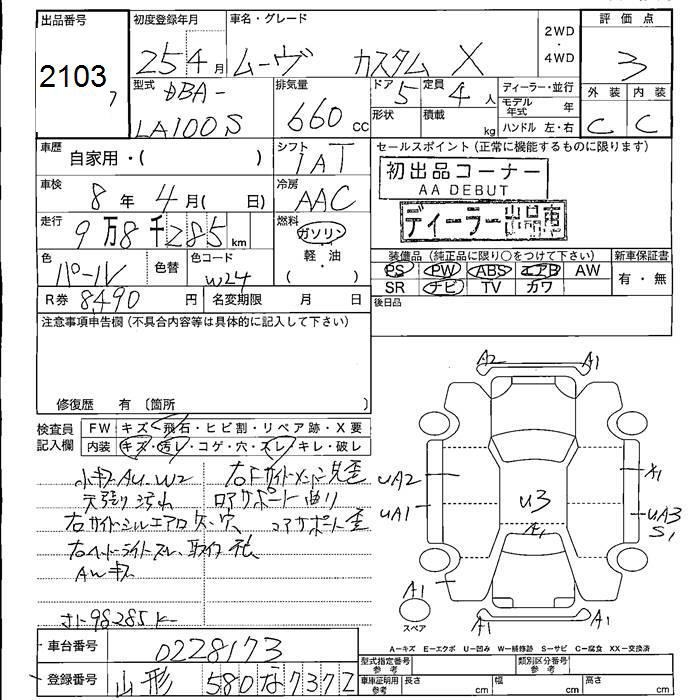 出品番号
2103
初度登録年月
25 4月
車名・グレード
ムーヴ カスタム X
2WD
・
4WD
評価点
3
外装 内装
C C
型式
DBA-
LA100S
排気量
660 cc
ドア
5
定員
4人
形状
積載
kg
ディーラー・並行
モデル年式 年
ハンドル 左・右
車歴
自家用・( )
シフト
IAT
セールスポイント(正常に機能するものに限ります)
初出品コーナー
AA DEBUT
ディーラー出品車
車検
8年 4月( 日)
冷房
AAC
走行
9万8千285km
燃料
ガソリン
・
軽・油
( )
色
パール
色替
色コード
W24
装備品(純正品に限り○をつけて下さい)
PS PW ABS エアB AW
SR ナビ TV カワ
新車保証書
有・無
R券 8,490 円
名変期限 月 日
後日品
注意事項申告欄(不具合内容等は具体的に記入して下さい)
修復歴 有〔箇所 〕
検査員
記入欄
FW キズ・飛石・ヒビ割・リペア跡・X要
内装 キズ・汚レ・コゲ・穴・スレ・キレ・破レ
小キズAU.W2
天張り汚れ
右サイドシルエアロ欠・穴
右ヘッドライトスレ
AWキズ
コアサポート曲り
コアサポート歪
98285K
A2 A1
UA2
UA1
U3
A1
X1
UA3
S1
A1
スペア
A1
A1
A=キズ E=エクボ U=凹み W=補修跡 S=サビ C=腐食 XX=交換済
車台番号
0228173
登録番号
山形 580 な 7372
型式指定番号
参考
類別区分番号
参考
車庫証明用
参考
長さ cm
幅 cm
高さ cm